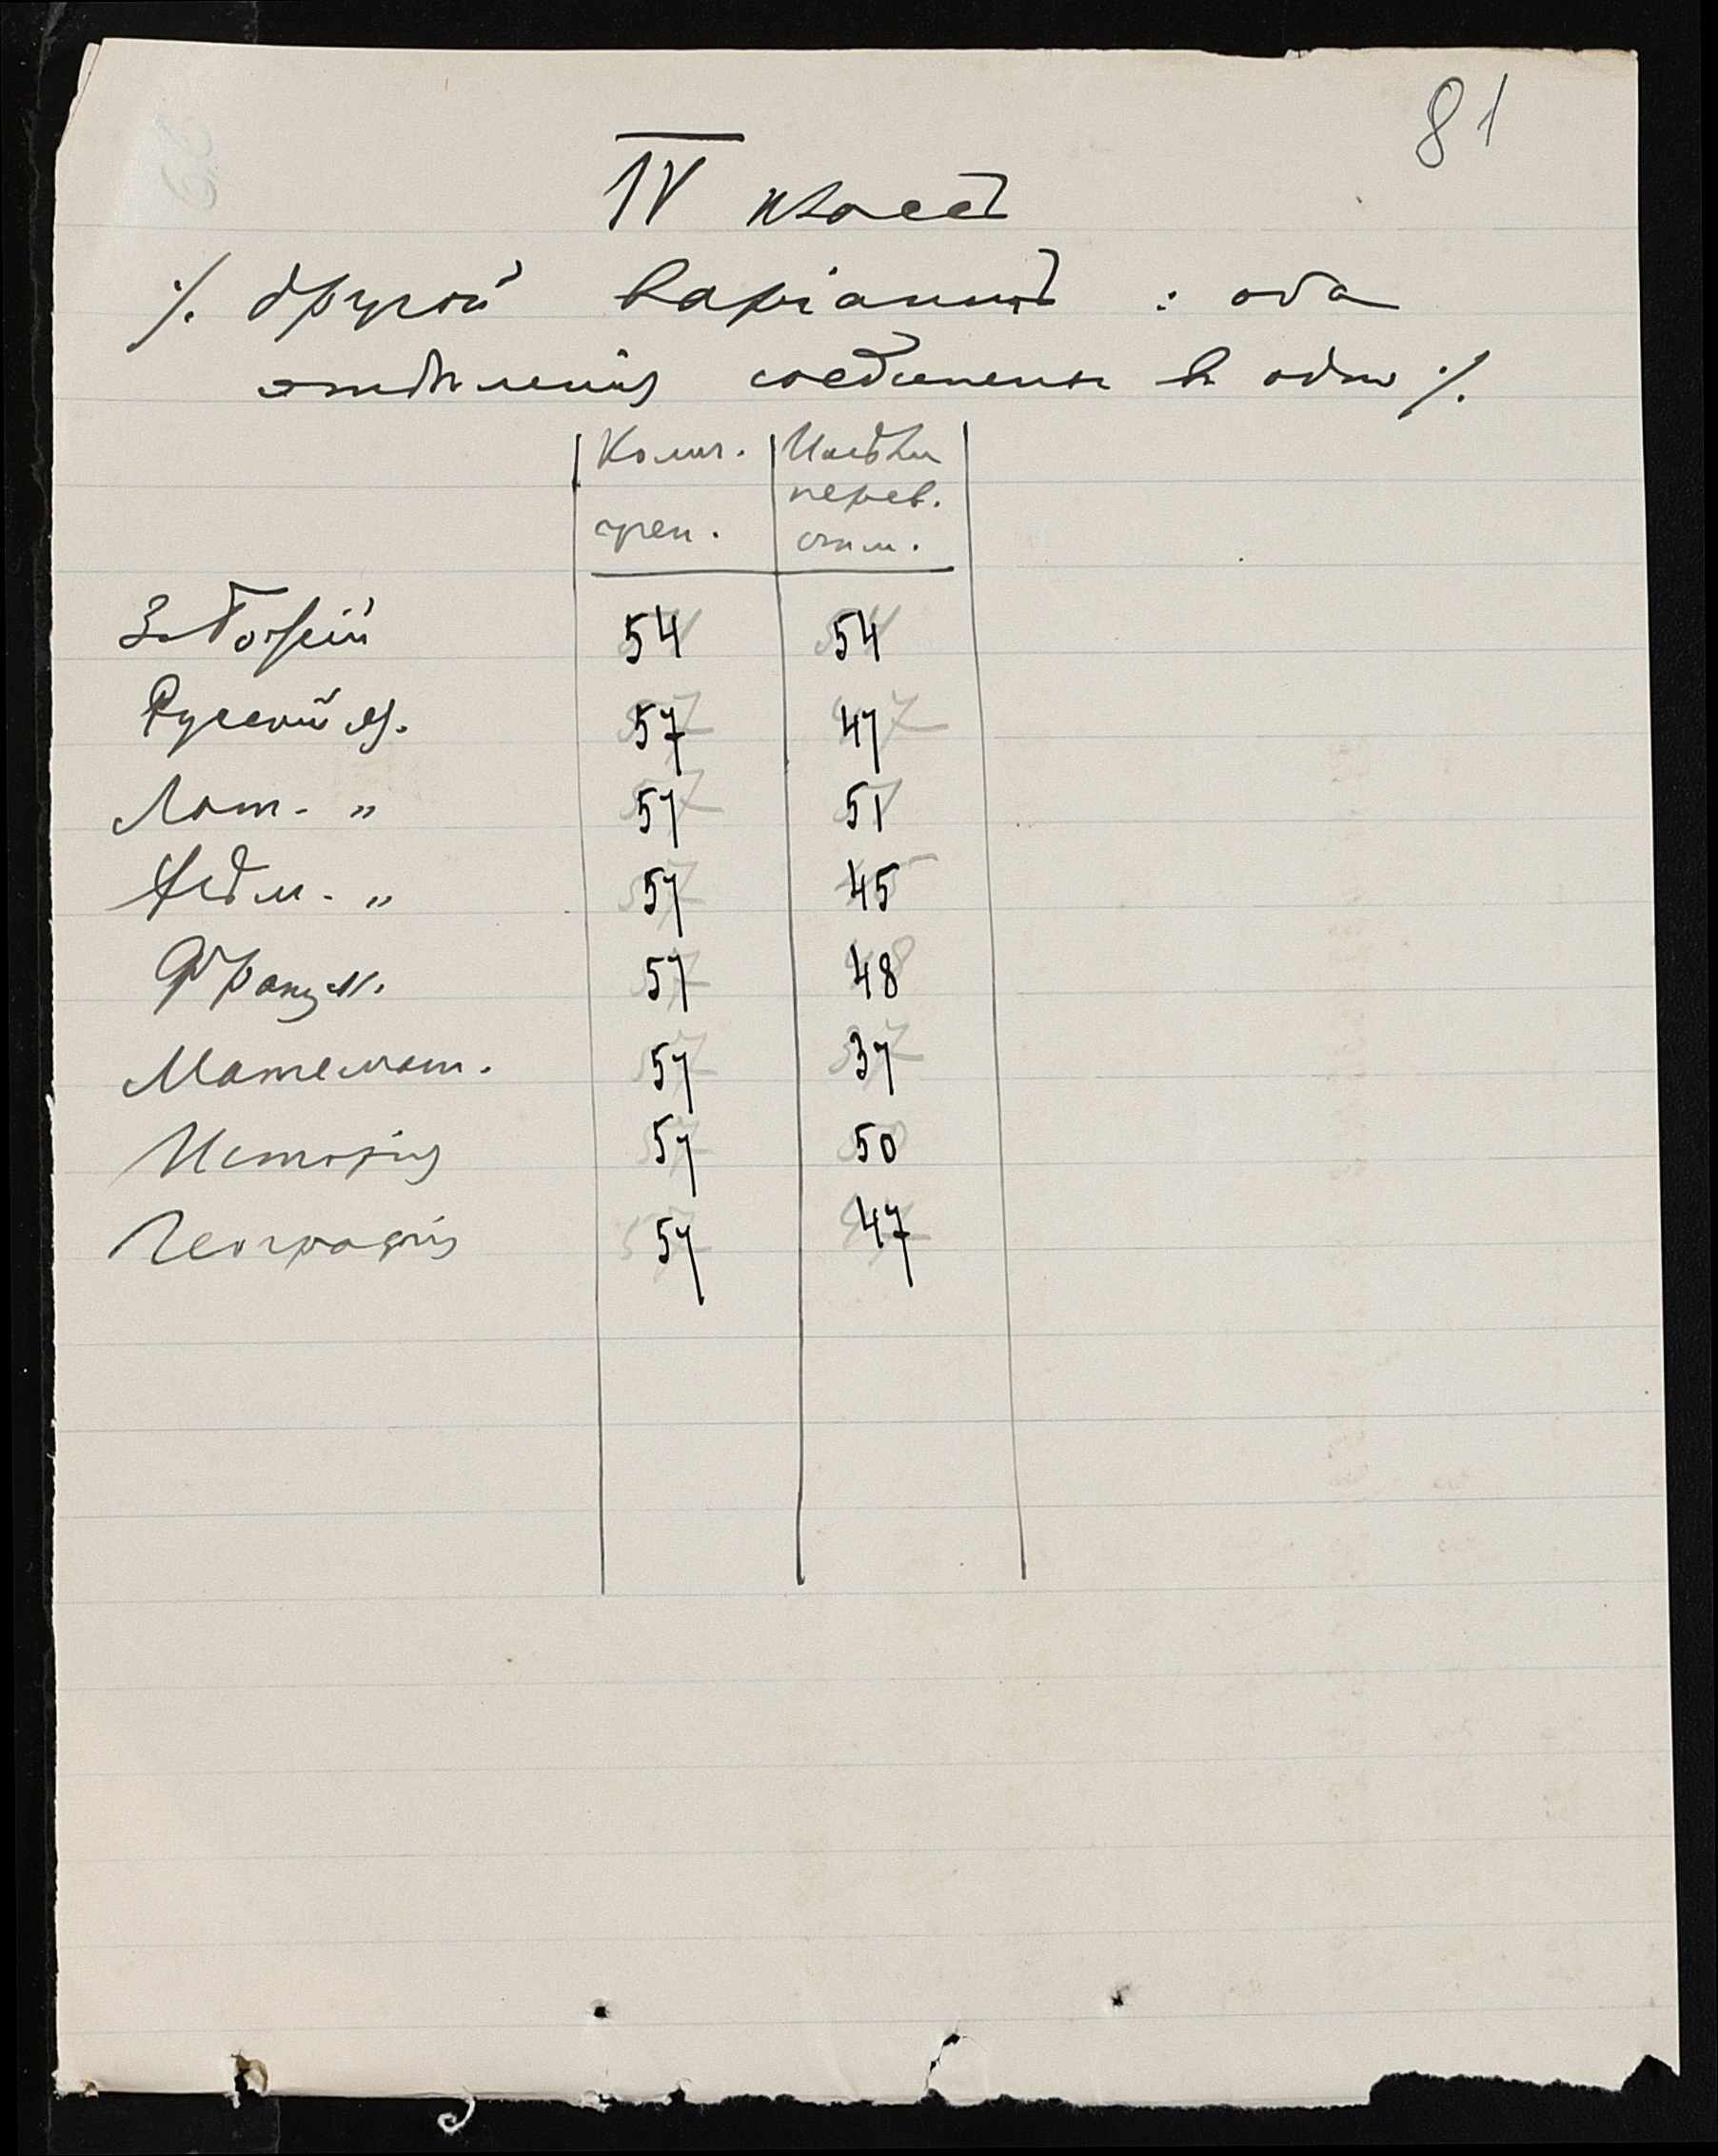 81
IV классъ
/. другой варіантъ : оба
отдѣленія соединены въ одно /.
Колич. Имѣли
перев.
учен. отм.
З. Божій 54 54
Русскій яз. 57 47
Лат. „ 57 51
„ 57 45
Француз. 57 48
Математ. 57 37
Исторія 57 50
Географія 57 47